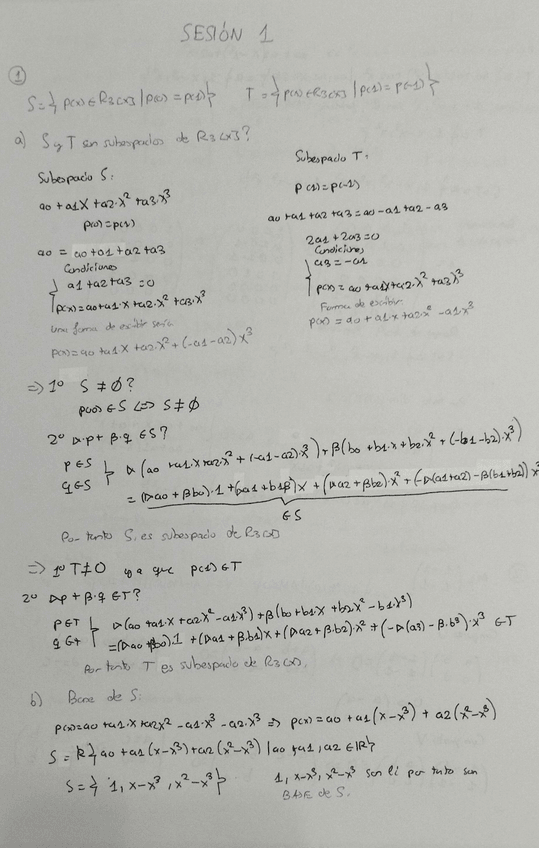 SESIÓN 1
①
S={p(x)∈R3[x] | p(0)=p(1)} T={p(x)∈R3[x] | p(1)=p(-1)}
a) S y T son subespacios de R3[x]?
Subespacio S:
a0+a1x+a2·x²+a3x³
p(0)=p(1)
a0 = a0+a1+a2+a3
Condiciones
{ a1+a2+a3=0
p(x)=a0+a1·x+a2·x²+a3·x³
Una forma de escribir sería
p(x)=a0+a1x+a2x²+(-a1-a2)x³
Subespacio T:
p(1)=p(-1)
a0+a1+a2+a3=a0-a1+a2-a3
2a1+2a3=0
Condiciones
{ a3=-a1
p(x)=a0+a1x+a2·x²+a3)x³
Forma de escribir:
p(x)=a0+a1·x+a2·x²-a1x³
⇒ 1º S≠∅?
∈S ⇔ S≠∅
2º α·p+β·q ∈S?
p∈S } α(a0+a1·x+a2x²+(-a1-a2)·x³)+β(b0+b1·x+b2·x²+(-b1-b2)·x³)
q∈S } =(αa0+βb0)·1+(αa1+b1β)x+(αa2+βb2)·x²+(-α(a1+a2)-β(b1+b2))x³
∈S
Por tanto S, es subespacio de R3[x]
⇒ 1º T≠0 ya que p(1)∈T
2º αp+β·q ∈T?
p∈T } α(a0+a1·x+a2x²-a1x³)+β(b0+b1·x+b2x²-b1x³)
q∈T } =(αa0+βb0)·1+(αa1+β·b1)x+(αa2+β·b2)·x²+(-α(a3)-β·b³)·x³ ∈T
Por tanto T es subespacio de R3[x].
b) Base de S:
p(x)=a0+a1·x+a2x²-a1·x³-a2·x³ ⇒ p(x)=a0+a1(x-x³)+a2(x²-x³)
S=R{a0+a1(x-x³)+a2(x²-x³) | a0+a1,a2∈R}
S={1, x-x³, x²-x³} 1, x-x³, x²-x³ son li por tanto son
BASE de S.